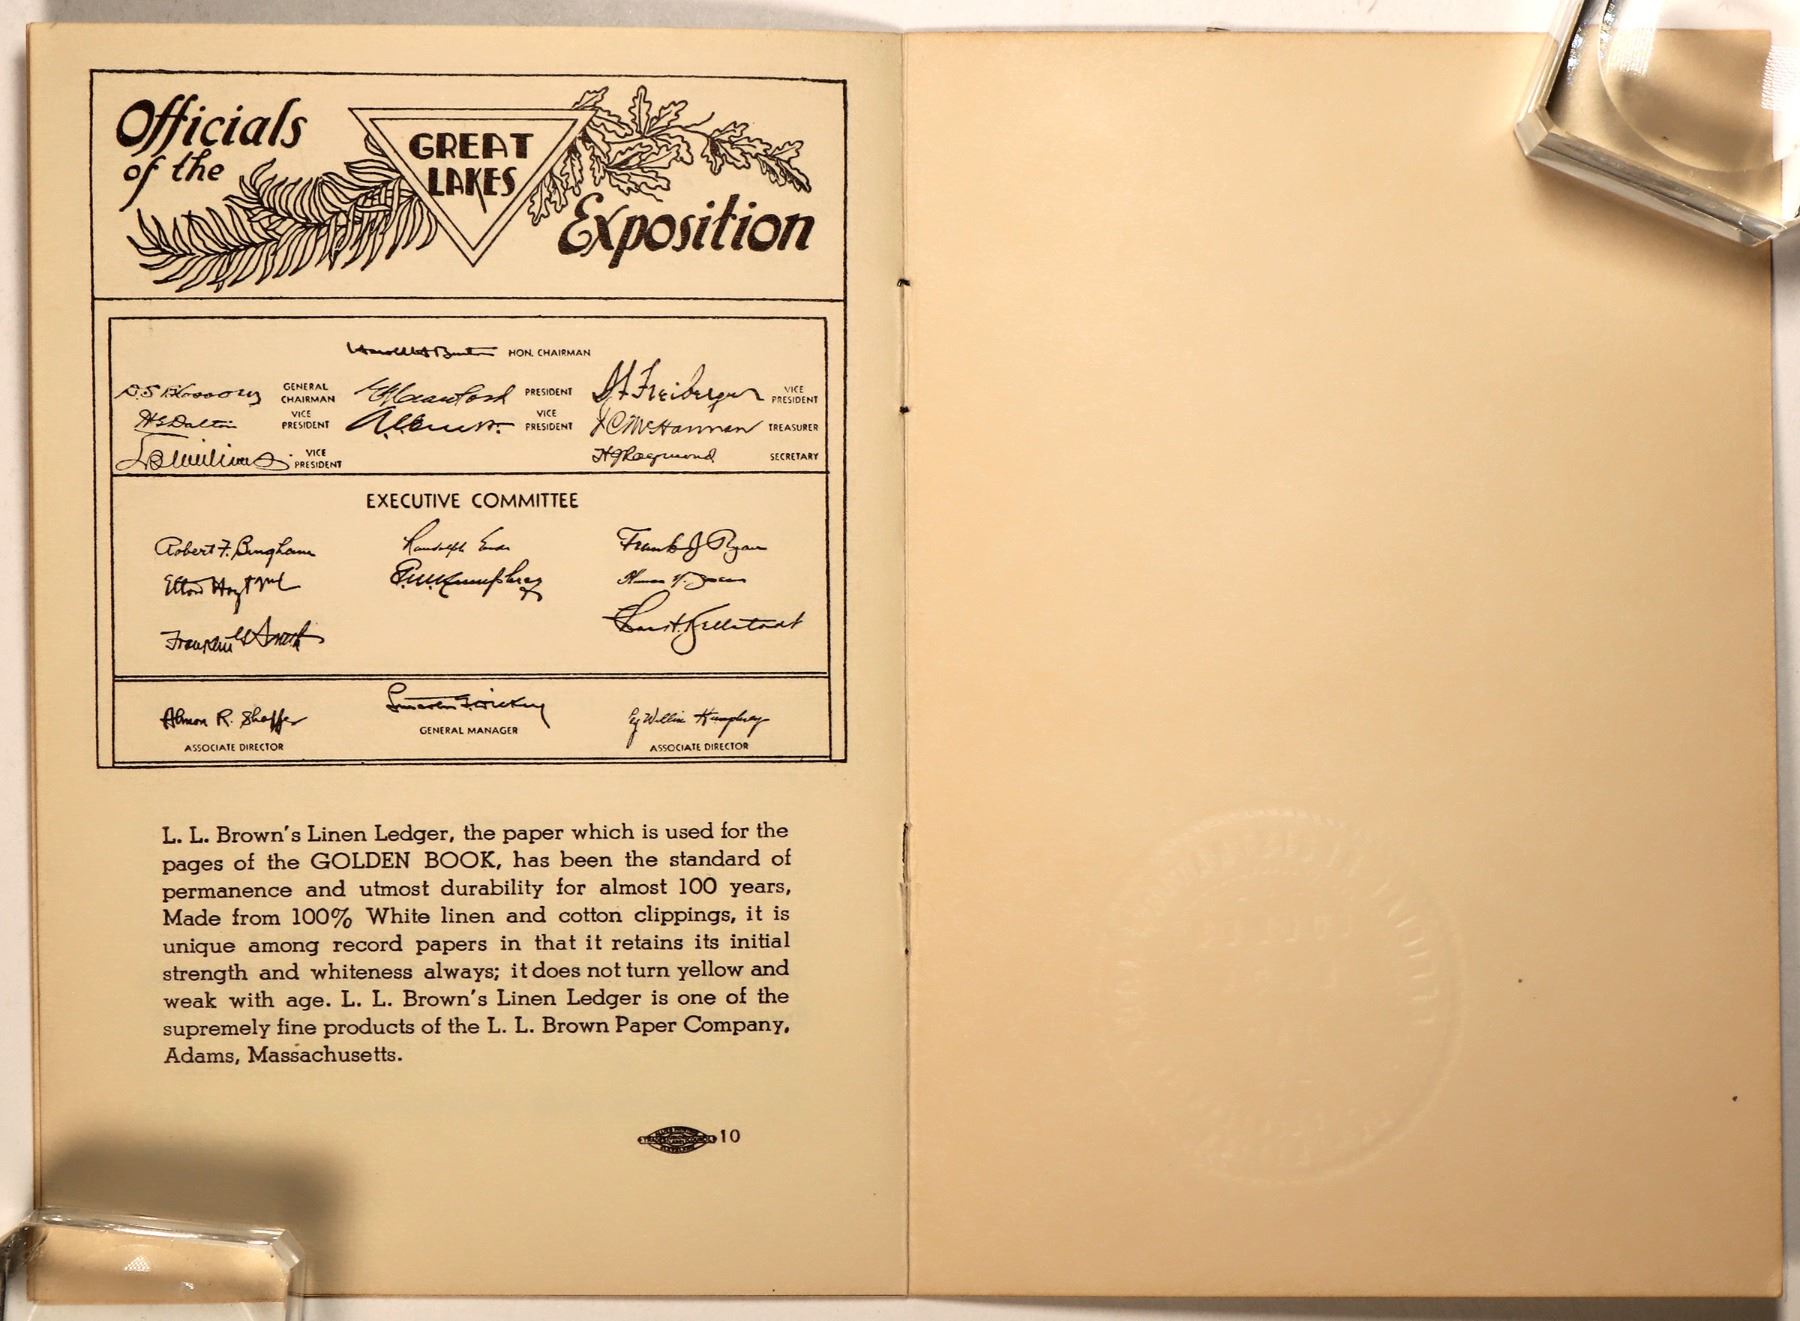 Officials
of the
GREAT
LAKES
Exposition
Harold H Burton HON. CHAIRMAN
GENERAL CHAIRMAN PRESIDENT Freiberger VICE PRESIDENT
H G Dalton VICE PRESIDENT VICE PRESIDENT J C McHannan TREASURER
VICE PRESIDENT H J Raymond SECRETARY
EXECUTIVE COMMITTEE
Robert F. Bingham Randolph Eide Frank J Ryan
Elton Hoyt G M Humphrey
Franklin G Smith
Almon R. Shaffer Lincoln G. Dickey Humphrey
GENERAL MANAGER
ASSOCIATE DIRECTOR ASSOCIATE DIRECTOR
L. L. Brown's Linen Ledger, the paper which is used for the
pages of the GOLDEN BOOK, has been the standard of
permanence and utmost durability for almost 100 years,
Made from 100% White linen and cotton clippings, it is
unique among record papers in that it retains its initial
strength and whiteness always; it does not turn yellow and
weak with age. L. L. Brown's Linen Ledger is one of the
supremely fine products of the L. L. Brown Paper Company,
Adams, Massachusetts.
10